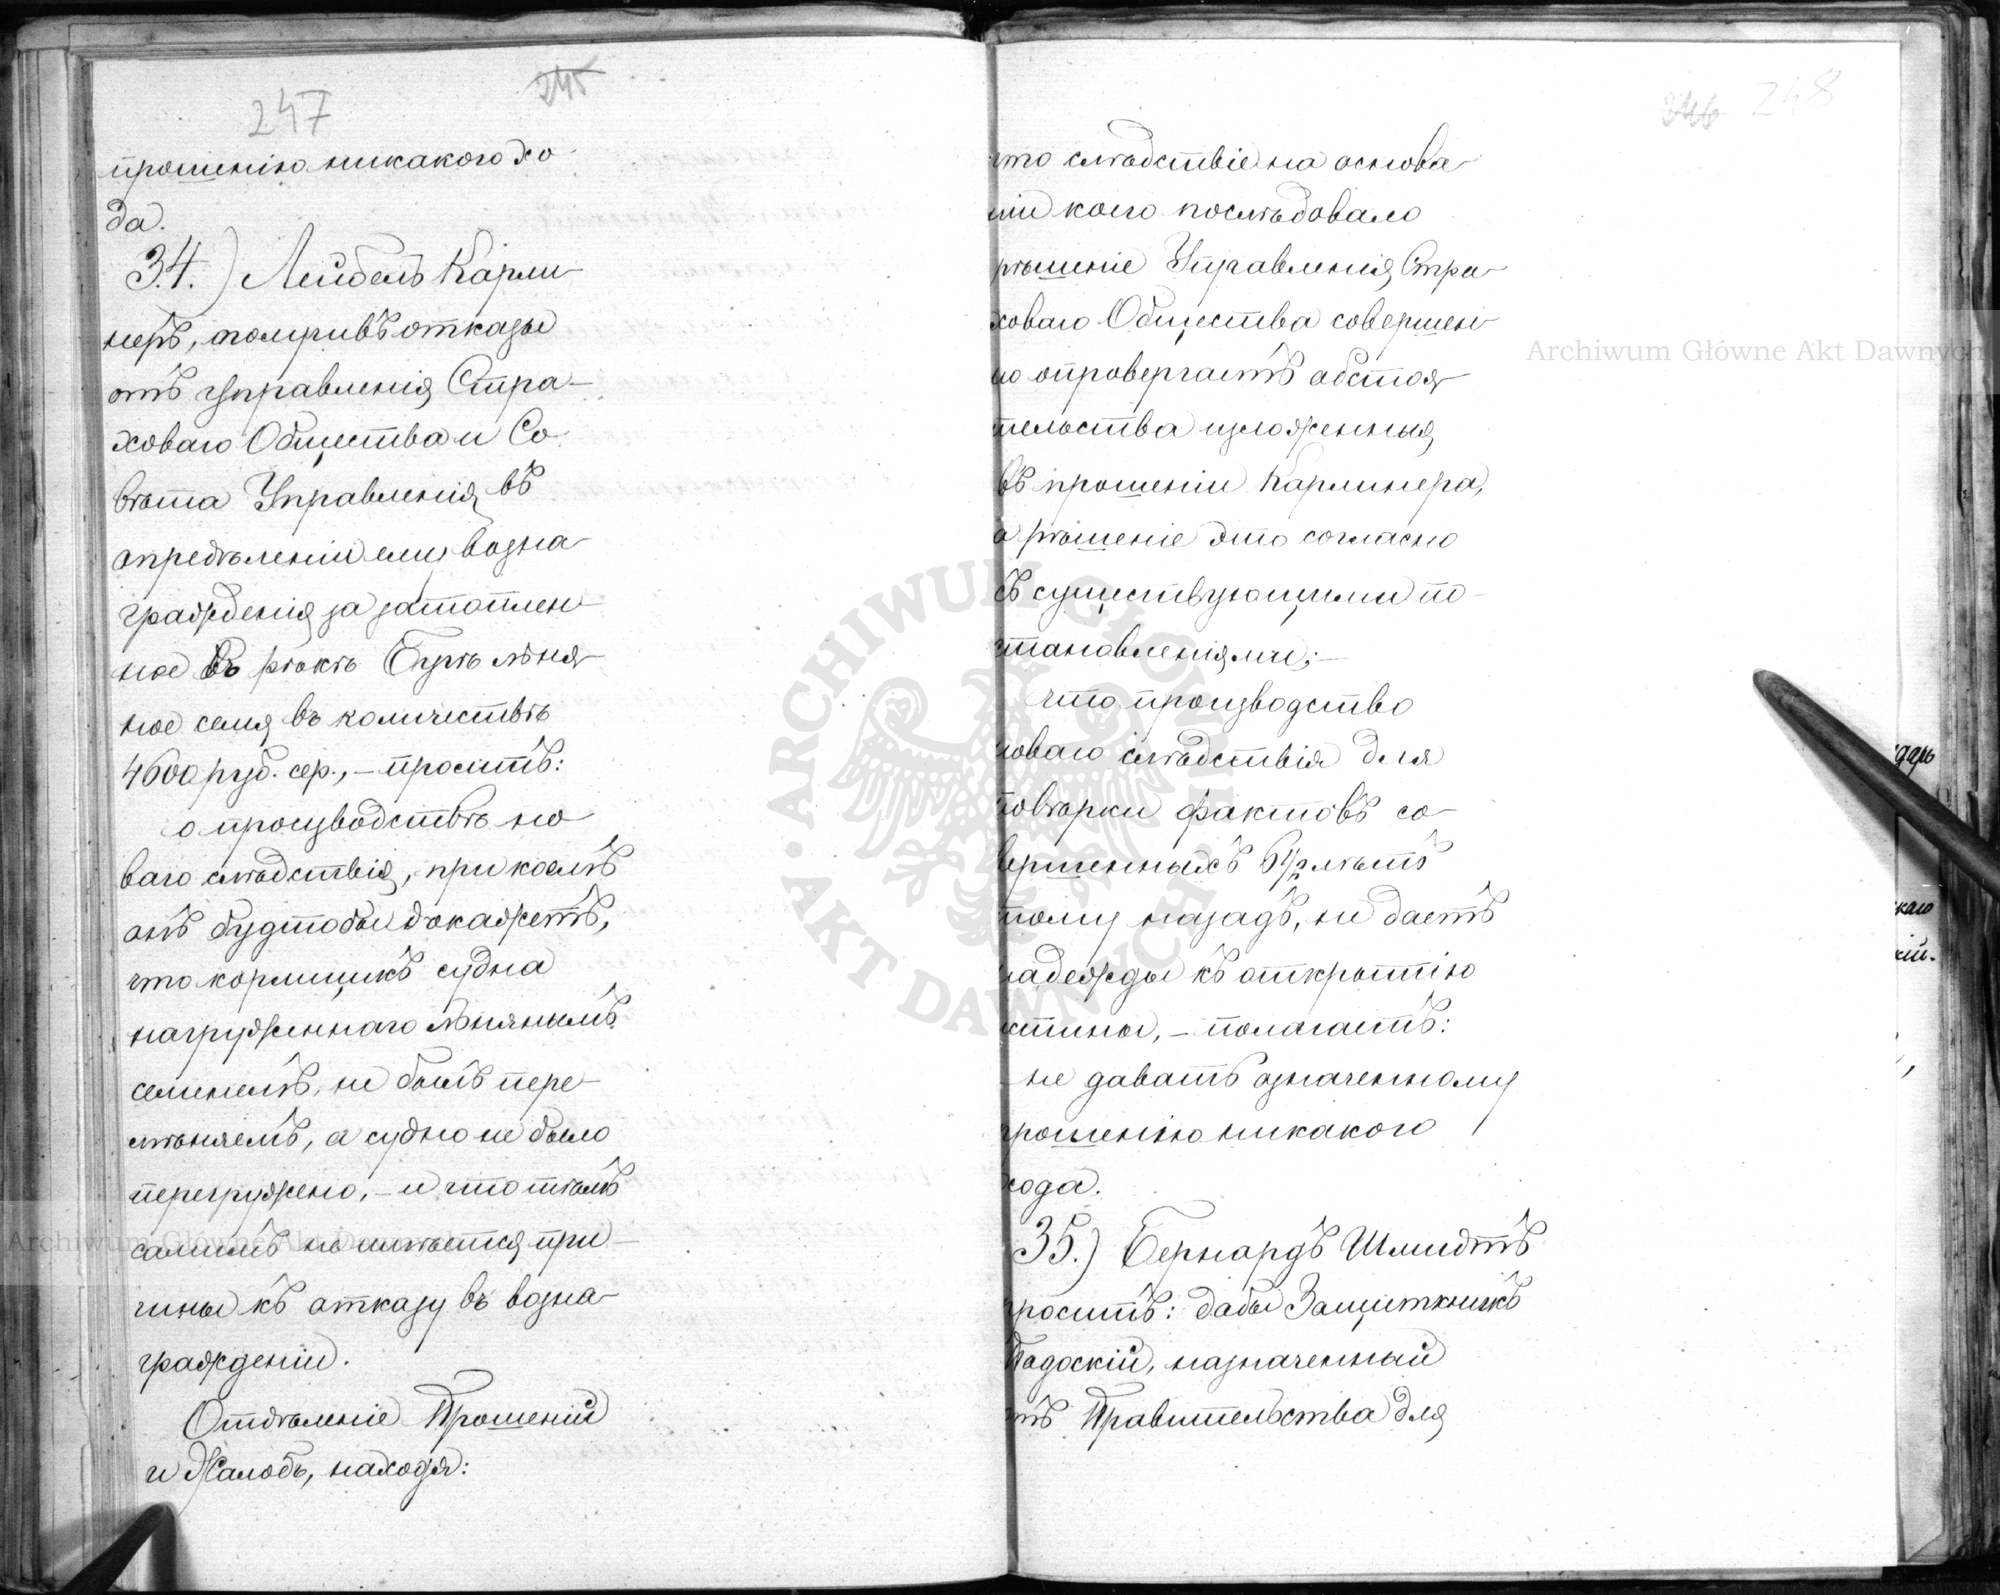 247
245
прошенію никакого хо
да.
34.) Лейбель Карли
неръ, получивъ отказы
отъ Управленія Стра-
ховаго Общества и Со
вѣта Управленія въ
опредѣленіи ему возна
гражденія за затоплен
ное въ рѣкѣ Бугѣ льня
ное семя въ количествѣ
4600 руб. сер., – проситъ:
о производствѣ но
ваго слѣдствія, при коемъ
онъ будто бы докажетъ,
что кормщикъ судна
нагруженнаго льнянымъ
семенемъ, не былъ пере
мѣняемъ, а судно не было
перегружено, – и что тѣмъ
самимъ не имѣется при–
чины къ отказу въ возна
гражденіи.
Отдѣленіе Прошеній
и Жалобъ, находя:
246 248
что слѣдствіе на основа
ніи коего послѣдовало
рѣшеніе Управленія Стра
ховаго Общества совершен
но опровергаетъ обстоя
тельства изложенныя
въ прошеніи Карлинера,
а рѣшеніе это согласно
съ существующими по–
становленіями; –
что производство
новаго слѣдствія для
повѣрки фактовъ со–
вершенныхъ 6 1/2 лѣтъ
тому назадъ, не даетъ
надежды къ открытію
истины, – полагаетъ:
не давать означенному
прошенію никакого
хода.
35.) Бернардъ Шмидтъ
проситъ: дабы Защитникъ
Падоскій, назначенный
отъ Правительства для
Archiwum Główne Akt Dawnych
Archiwum Główne Akt Dawnych
ARCHIWUM GŁÓWNE · AKT DAWNYCH ·